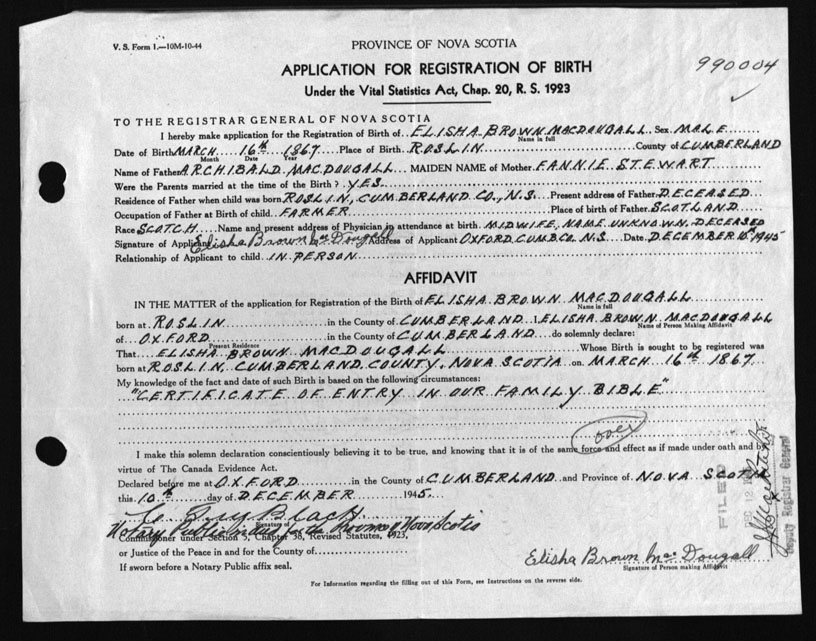 V. S. Form 1.—10M-10-44
PROVINCE OF NOVA SCOTIA
990004
APPLICATION FOR REGISTRATION OF BIRTH
Under the Vital Statistics Act, Chap. 20, R. S. 1923
TO THE REGISTRAR GENERAL OF NOVA SCOTIA
I hereby make application for the Registration of Birth of ELISHA BROWN MACDOUGALL Sex MALE
Name in full
Date of Birth MARCH 16th 1867 Place of Birth ROSLIN County of CUMBERLAND
Month Date Year
Name of Father ARCHIBALD MACDOUGALL MAIDEN NAME of Mother FANNIE STEWART
Were the Parents married at the time of the Birth? YES
Residence of Father when child was born ROSLIN, CUMBERLAND CO., N.S. Present address of Father DECEASED
Occupation of Father at Birth of child FARMER Place of birth of Father SCOTLAND
Race SCOTCH Name and present address of Physician in attendance at birth MIDWIFE, NAME UNKNOWN, DECEASED
Signature of Applicant Elisha Brown MacDougall Address of Applicant OXFORD CUMB. CO. N.S. Date DECEMBER 10th 1945
Relationship of Applicant to child IN PERSON
AFFIDAVIT
IN THE MATTER of the application for Registration of the Birth of ELISHA BROWN MACDOUGALL
Name in full
born at ROSLIN in the County of CUMBERLAND I ELISHA BROWN MACDOUGALL
Name of Person Making Affidavit
of OXFORD in the County of CUMBERLAND do solemnly declare:
Present Residence
That ELISHA BROWN MACDOUGALL Whose Birth is sought to be registered was
born at ROSLIN, CUMBERLAND COUNTY, NOVA SCOTIA on MARCH 16th 1867
My knowledge of the fact and date of such Birth is based on the following circumstances:
"CERTIFICATE OF ENTRY IN OUR FAMILY BIBLE"
over
I make this solemn declaration conscientiously believing it to be true, and knowing that it is of the same force and effect as if made under oath and by
virtue of The Canada Evidence Act.
Declared before me at OXFORD in the County of CUMBERLAND and Province of NOVA SCOTIA
this 10th day of DECEMBER 1945.
Signature of
Notary Public in and for the Province of Nova Scotia
Commissioner under Section 5, Chapter 38, Revised Statutes, 1923,
or Justice of the Peace in and for the County of
If sworn before a Notary Public affix seal.
Elisha Brown MacDougall
Signature of Person making Affidavit
For Information regarding the filling out of this Form, see Instructions on the reverse side.
FILED
Deputy Registrar General